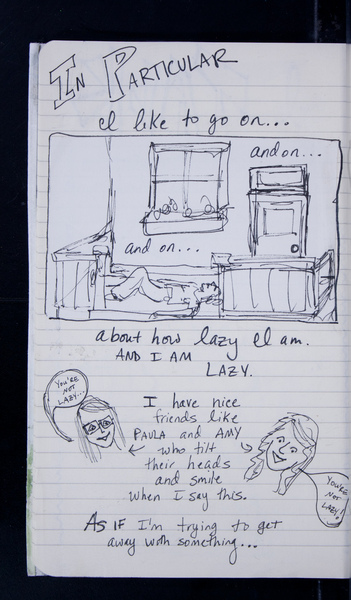 IN PARTICULAR
I like to go on...
and on...
and on...
about how lazy I am.
AND I AM
LAZY.
YOU'RE
NOT
LAZY...
I have nice
friends like
PAULA and AMY
who tilt
their heads
and smile
when I say this.
YOU'RE
NOT
LAZY!
AS IF I'm trying to get
away with something...